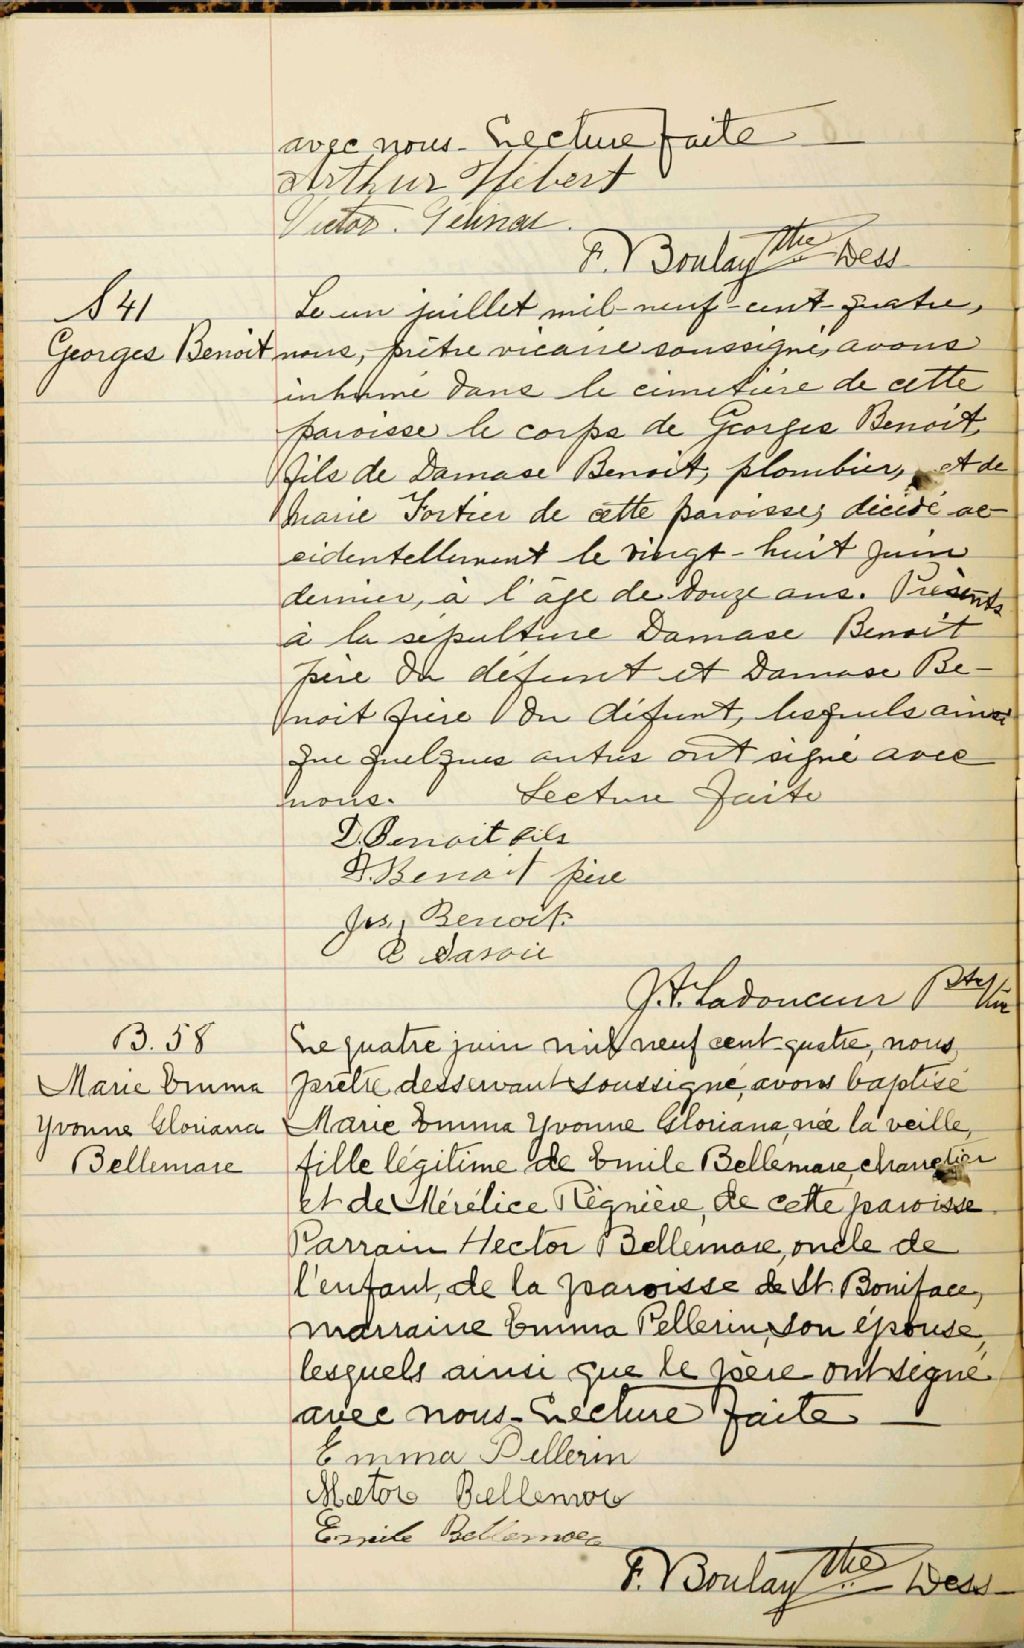 avec nous - Lecture faite —
Arthur Hébert
Victor.
F. Boulay ptre Dess
S 41
Georges Benoit
Le un juillet mil-neuf-cent-quatre,
nous, prêtre vicaire soussigné, avons
inhumé dans le cimetière de cette
paroisse le corps de Georges Benoit,
fils de Damase Benoit, plombier, et de
Marie Fortier de cette paroisse, décédé ac-
cidentellement le vingt-huit juin
dernier, à l'âge de douze ans. Présents
à la sépulture Damase Benoit
père du défunt et Damase Be-
noit frère du défunt, lesquels ainsi
que quelques autres ont signé avec
nous. Lecture faite
D. Benoit fils
D. Benoit père
Jos, Benoit.
Savoie
J.A. Ladouceur Ptre Vic
B. 58
Marie Emma
Yvonne Gloriana
Bellemare
Le quatre juin mil neuf cent-quatre, nous,
prêtre desservant soussigné, avons baptisé
Marie Emma Yvonne Gloriana, née la veille,
fille légitime de Emile Bellemare, charretier
et de Mérélice Régnière, de cette paroisse
Parrain Hector Bellemare, oncle de
l'enfant, de la paroisse de St. Boniface,
marraine Emma Pellerin, son épouse,
lesquels ainsi que le père ont signé
avec nous - Lecture faite —
Emma Pellerin
Hector Bellemare
Emile Bellemare
F. Boulay ptre Dess —